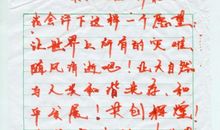 我会许下这样一个愿望,
让世界上所有的灾难
随风而逝吧!让大自然
与人类和谐共存、和
平发展,共创辉煌!